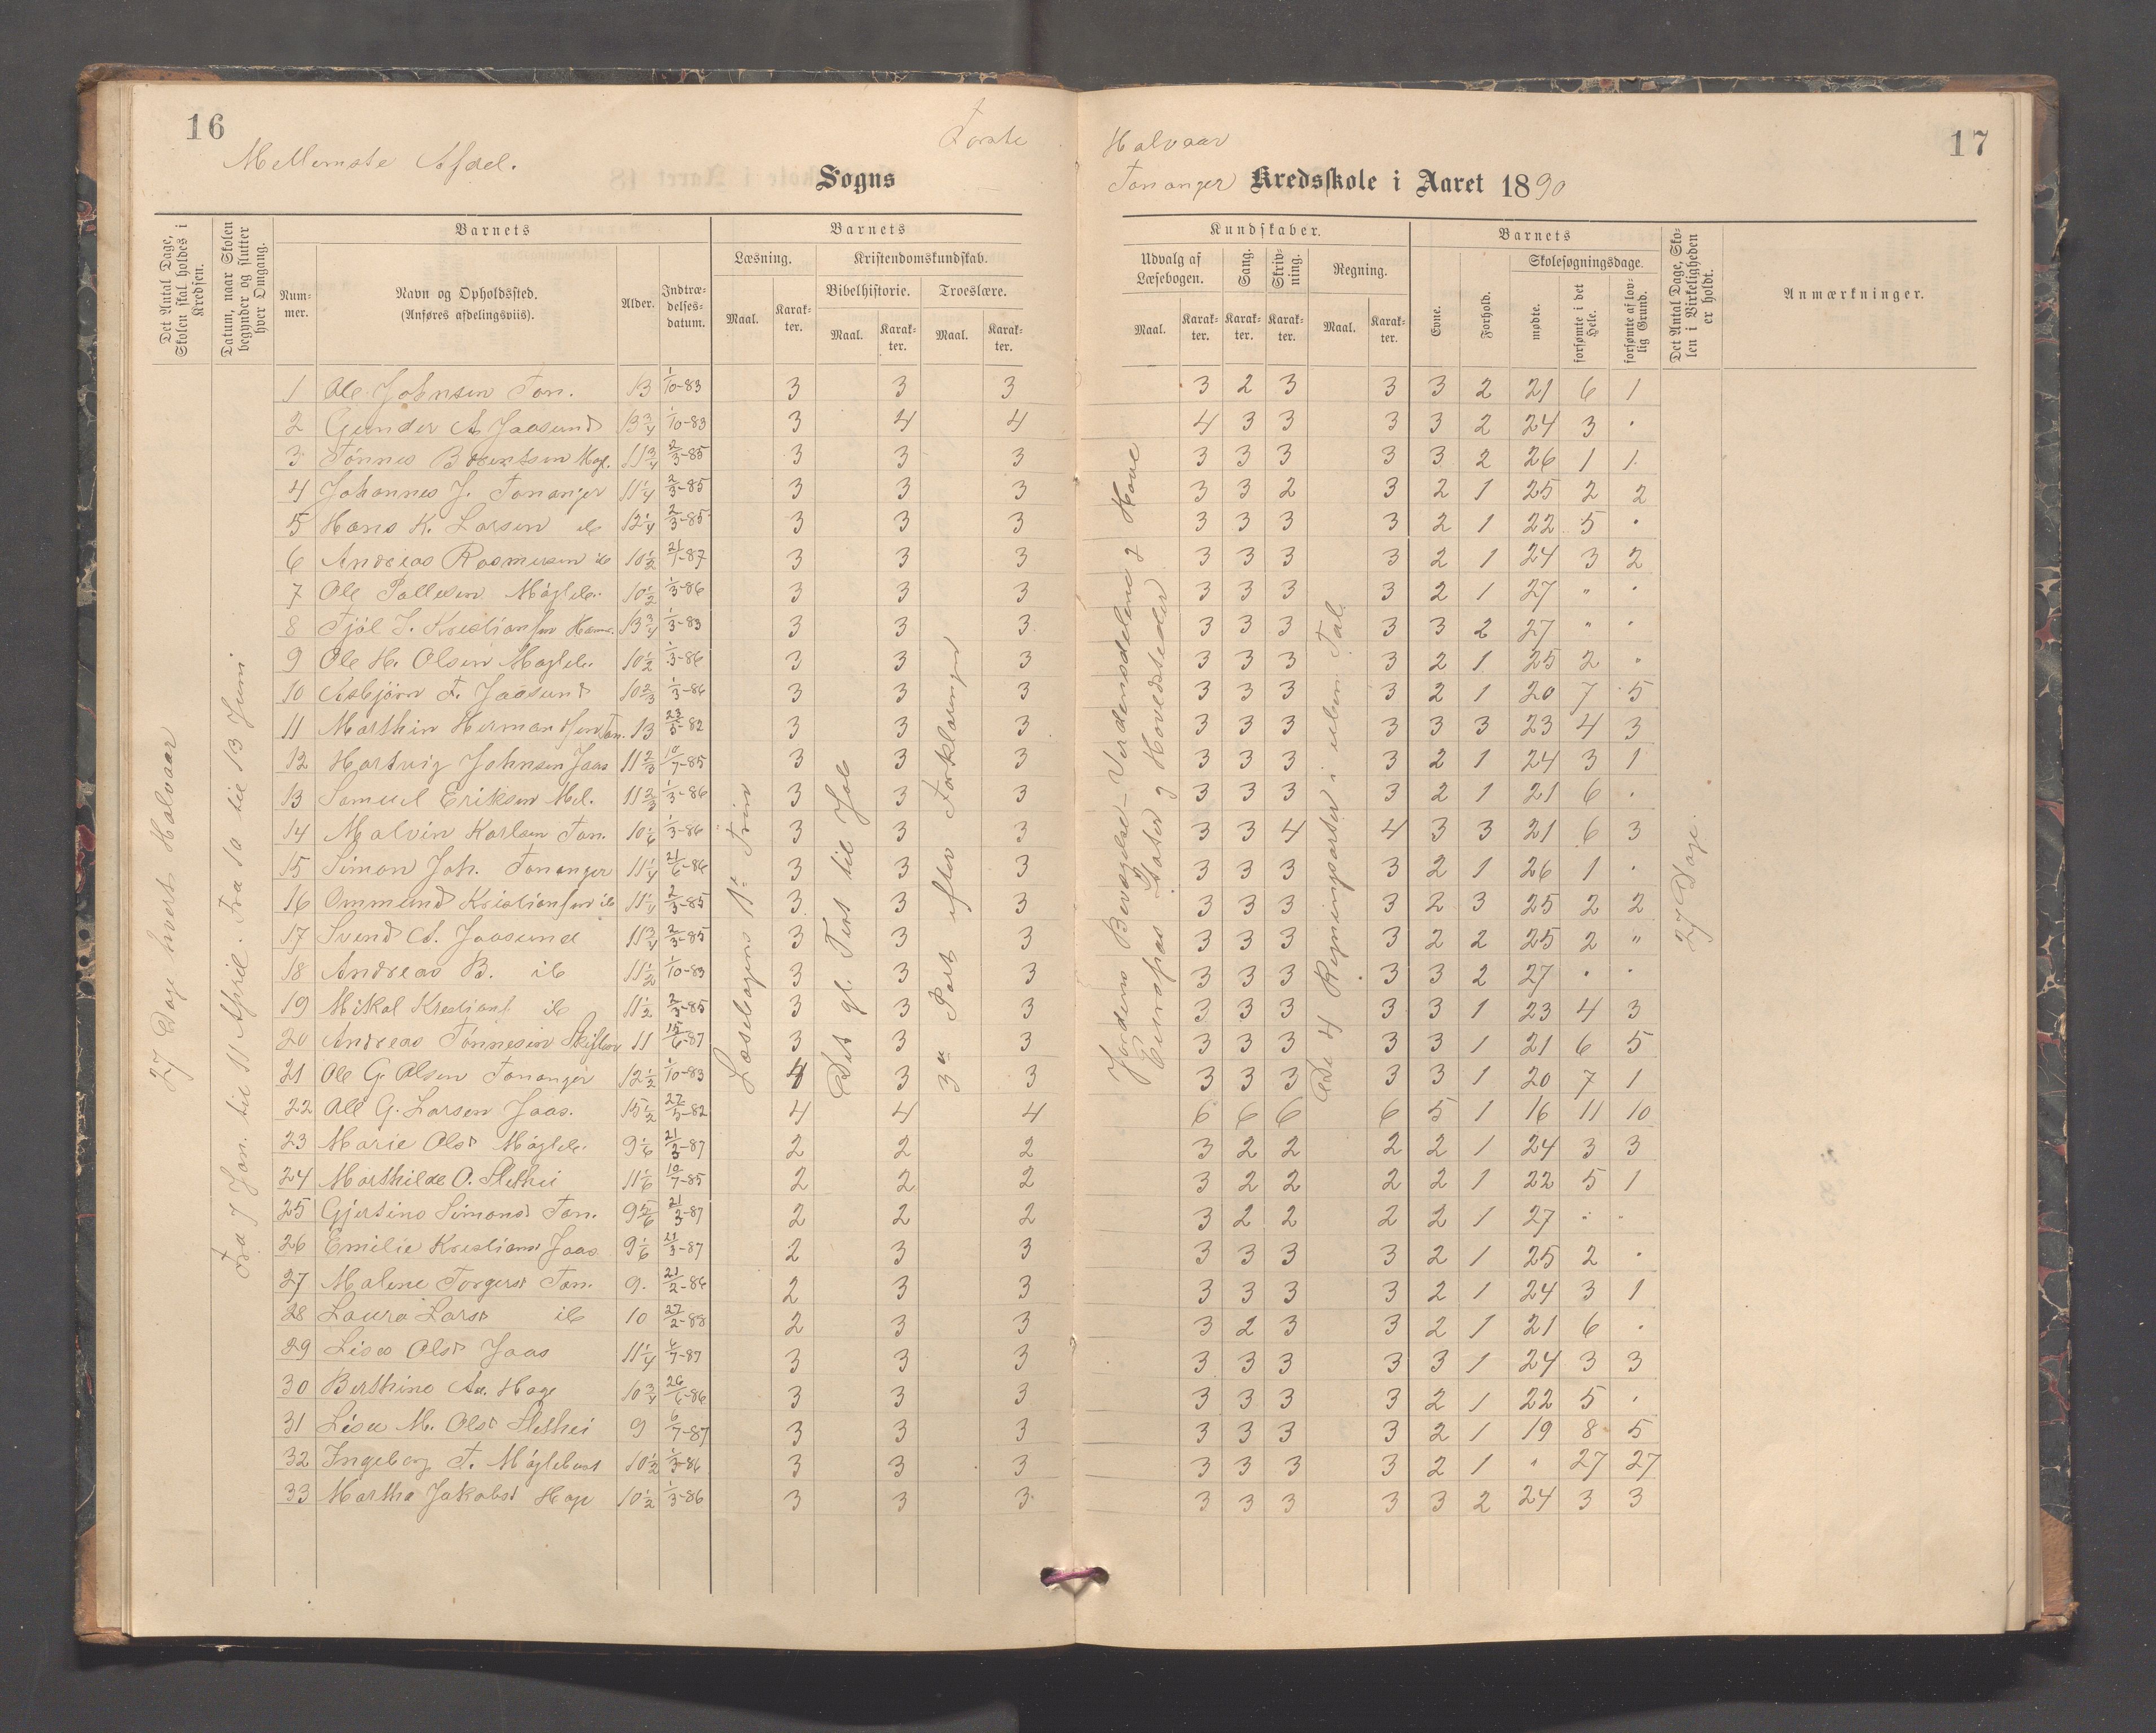 16
Mellemste Afdel.
Første
Sogns
Halvaar
17
Tananger Kredsskole i Aaret 1890
Det Antal Dage, Skolen skal holdes i Kredsen.
Datum, naar Skolen begynder og slutter hver Omgang.
Barnets
Num-mer.
Navn og Opholdssted.
(Anføres afdelingsviis).
Alder.
Indtræ-delses-datum.
Barnets
Læsning.
Kristendomskundskab.
Bibelhistorie.
Troeslære.
Maal.
Karak-ter.
Maal.
Karak-ter.
Maal.
Karak-ter.
Kundskaber.
Udvalg af Læsebogen.
Sang.
Skriv-ning.
Regning.
Maal.
Karak-ter.
Karak-ter.
Karak-ter.
Maal.
Karak-ter.
Barnets
Evne.
Forhold.
Skolesøgningsdage.
mødte.
forsømte i det Hele.
forsømte af lov-lig Grund.
Det Antal Dage, Sko-len i Virkeligheden er holdt.
Anmærkninger.
27 Dage hvert Halvaar
Fra 7 Jan. til 11 April. Fra 10 til 13 Juni
Læsebogens 1ste Trin
Det gl. Test til Job
3die Part efter Forklaringen
Jordens Bevægelse - Verdensdelene og Have
Europas Stater og Hovedsteder
De 4 Regningsarter i uben. Tal.
27 Dage.
1 Ole Johnsen Tan. 13 1/10-83 3 3 3 3 2 3 3 3 2 21 6 1
2 Gunder A Jaasund 13 3/4 1/10-83 3 4 4 4 3 3 3 3 2 24 3 .
3 Tønnes Berentsen Hag. 11 3/4 2/3-85 3 3 3 3 3 3 3 3 2 26 1 1
4 Johannes J. Tananger 11 1/4 2/3-85 3 3 3 3 3 2 3 2 1 25 2 2
5 Hans K. Larsen ib 12 1/4 2/3-85 3 3 3 3 3 3 3 2 1 22 5 .
6 Andreas Rasmussen ib 10 1/2 21/1-87 3 3 3 3 3 3 3 2 1 24 3 2
7 Ole Pallesen Møgleb. 10 1/2 1/3-86 3 3 3 3 3 3 3 2 1 27 " .
8 Tjøl S. Kristiansen 13 3/4 1/3-83 3 3 3 3 3 3 3 3 2 27 " "
9 Ole H. Olsen Møgleb. 10 1/2 1/3-86 3 3 3 3 3 3 3 2 1 25 2 "
10 Asbjørn T. Jaasund 10 2/3 1/3-86 3 3 3 3 3 3 3 2 1 20 7 5
11 Marthin Hermandsen Tan. 13 23/5-82 3 3 3 3 3 3 3 3 3 23 4 3
12 Hartvig Johnsen Jaas 11 2/3 10/7-85 3 3 3 3 3 3 3 2 1 24 3 1
13 Samuel Eriksen Mel. 11 2/3 1/3-86 3 3 3 3 3 3 3 2 1 21 6 .
14 Malvin Karlsen Tan. 10 1/6 1/3-86 3 3 3 3 3 4 4 3 3 21 6 3
15 Simon Joh. Tananger 11 1/4 21/6-86 3 3 3 3 3 3 3 2 1 26 1 .
16 Ommund Kristiansen ib 11 1/4 2/3-85 3 3 3 3 3 3 3 2 3 25 2 2
17 Svend A. Jaasund 11 3/4 2/3-85 3 3 3 3 3 3 3 2 2 25 2 "
18 Andreas B. ib 11 1/2 1/10-83 3 3 3 3 3 3 3 3 2 27 . .
19 Mikal Kristians ib 11 1/2 2/3-85 3 3 3 3 3 3 3 3 1 23 4 3
20 Andreas Tønnesen 11 15/6-87 3 3 3 3 3 3 3 3 1 21 6 5
21 Ole G. Olsen Tananger 12 1/2 1/10-83 4 3 3 3 3 3 3 3 1 20 7 1
22 Ole G. Larsen Jaas. 15 1/2 22/5-82 4 4 4 6 6 6 6 5 1 16 11 10
23 Marie Olsd Møgleb. 9 1/6 21/3-87 2 2 2 3 2 2 2 2 1 24 3 3
24 Marthilde O. Slethei 11 1/6 10/7-85 2 2 2 3 2 2 2 2 1 22 5 1
25 Gjertine Simonsd Tan. 9 5/6 21/3-87 2 2 2 3 2 2 2 2 1 27 " "
26 Emilie Kristians Jaas 9 1/6 21/3-87 2 3 3 3 3 3 3 2 1 25 2 .
27 Malene Torgersd Tan. 9. 21/2-86 2 3 3 3 3 3 3 2 1 24 3 1
28 Laura Larsd ib 10 27/2-88 2 3 3 3 2 3 3 2 1 21 6 .
29 Lisa Olsd Jaas 11 1/4 6/7-87 3 3 3 3 3 3 3 3 1 24 3 3
30 Berthine Hage 10 3/4 26/6-86 3 3 3 3 3 3 3 2 1 22 5 .
31 Lise M. Olsd Slethei 9 6/7-87 3 3 3 3 3 3 3 2 1 19 8 5
32 Ingeborg T. Møglebust 10 1/2 1/3-86 3 3 3 3 3 3 3 2 1 " 27 27
33 Martha Jakobsd Hage 10 1/2 1/3-86 3 3 3 3 3 3 3 3 2 24 3 3